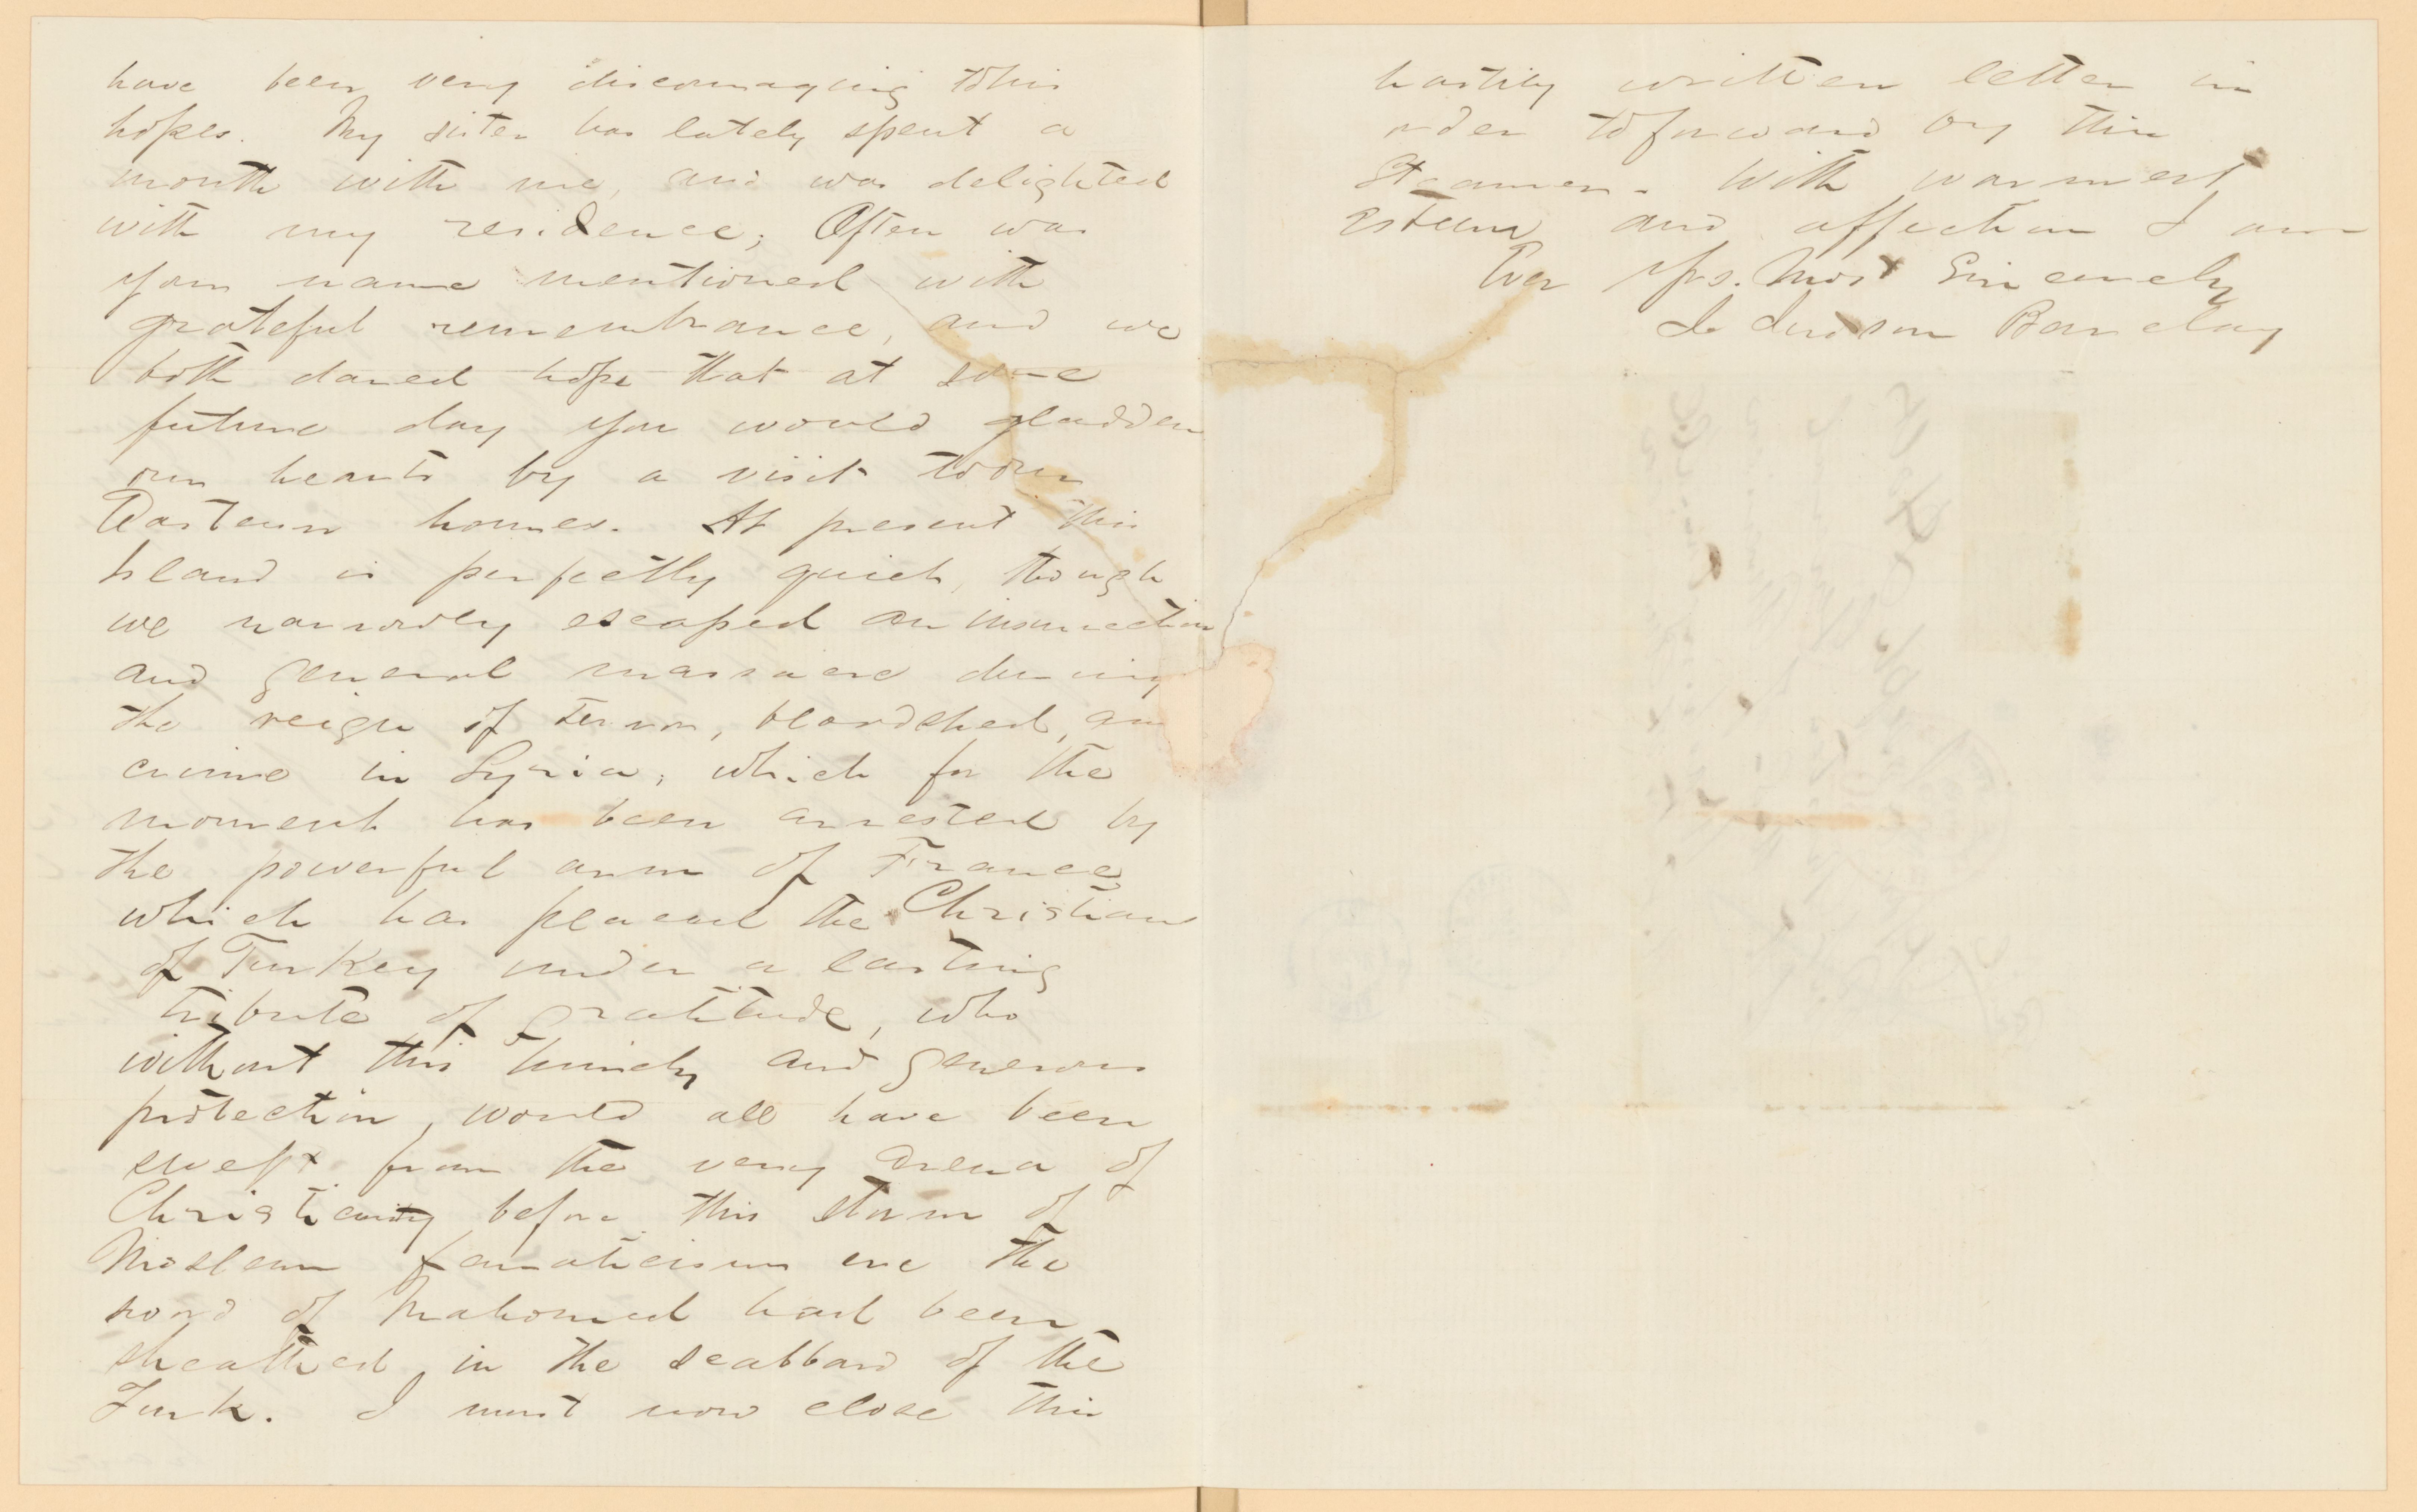 have been very discouraging to his
hopes. My sister has lately spent a
month with me, and was delighted
with my residence; Often was
your name mentioned with
grateful remembrance, and we
both dared hope that at some
future day you would gladden
our hearts by a visit to our
Eastern homes. At present this
Island is perfectly quiet, though
we narrowly escaped an insurrection
and general massacre during
the reign of terror, bloodshed, and
crime in Syria, which for the
moment has been arrested by
the powerful arm of France
which has placed the Christians
of Turkey under a lasting
tribute of gratitude, who
without this timely and generous
protection, would all have been
swept from the very arena of
Christianity before this storm of
Moslem fanaticism ere the
sword of Mahomed had been
sheathed in the scabbard of the
Turk. I must now close this
hastily written letter in
order to forward by this
Steamer. With warmest
esteem and affection I am
Ever Yrs. Most Sincerely
J. Judson Barclay